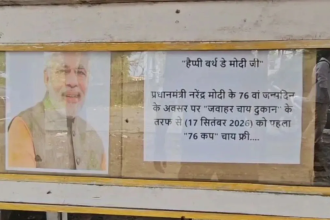 "हैप्पी बर्थ डे मोदी जी"
प्रधानमंत्री नरेंद्र मोदी के 76 वां जन्मदिन
के अवसर पर "जवाहर चाय दुकान" के
तरफ से (17 सितंबर 2026) को पहला
"76 कप" चाय फ्री....